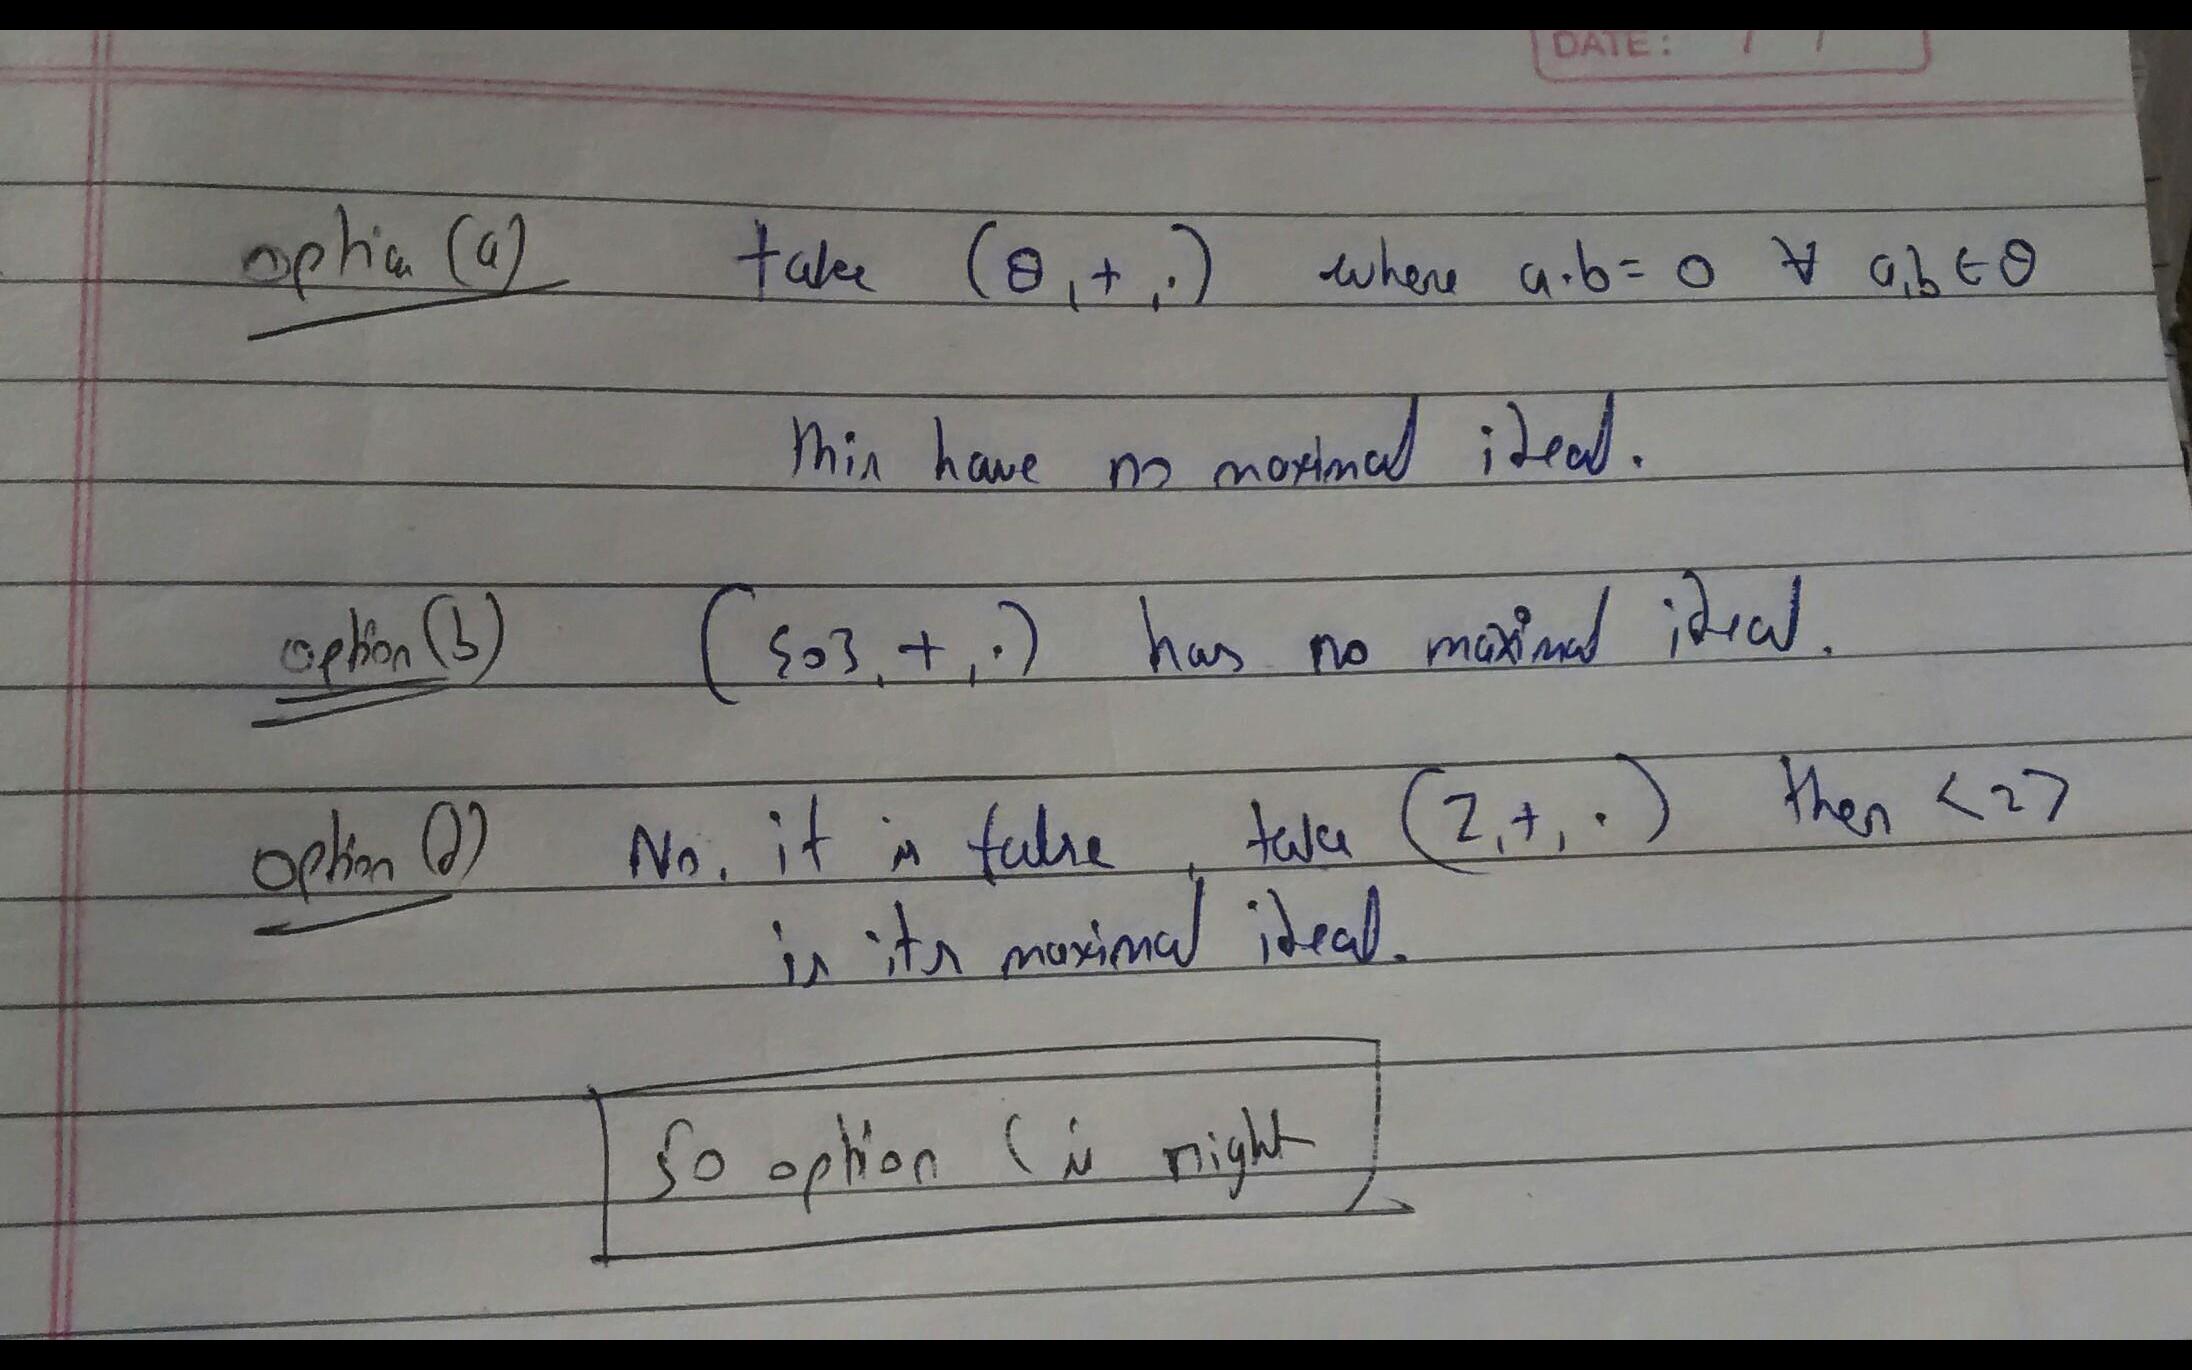 DATE: / /
option (a) take (Q, +, .) where a.b = 0 ∀ a,b ∈ Q
this have no maximal ideal.
option (b) ({0}, +, .) has no maximal ideal.
option (d) No, it is false, take (Z, +, .) then <2>
is its maximal ideal.
So option C is right